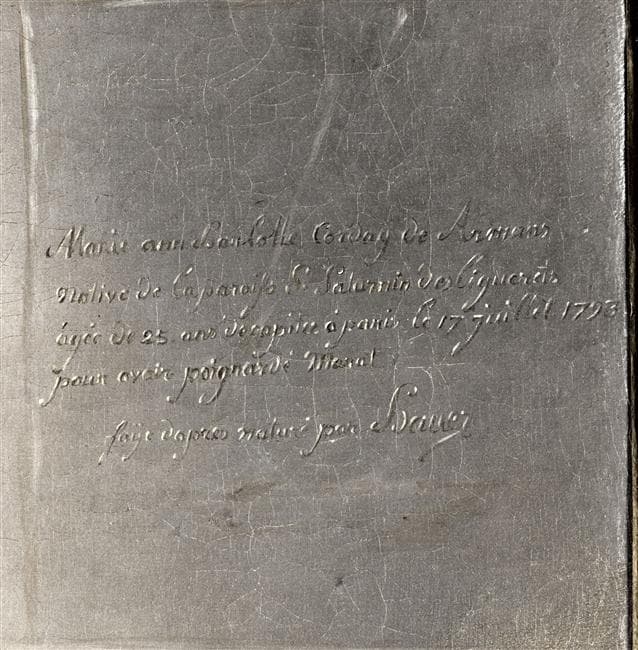 Marie ann Charlotte Corday de Armans
Native de la paroiss St Saturnin des ligueret
agée de 25 ans décapitée à paris le 17 juillet 1793
pour avoir poignardé Marat
fait daprès nature par Hauer